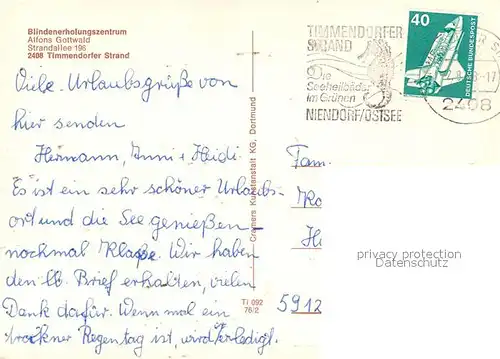 Blindenerholungszentrum
Alfons Gottwald
Strandallee 196
2408 Timmendorfer Strand
Viele Urlaubsgrüße von
hier senden
Hermann, Anni + Heidi.
Es ist ein sehr schöner Urlaubs-
ort und die See genießen -
nochmal Klasse. Wir haben
den lb. Brief erhalten, vielen
Dank dafür. Wenn mal ein
trockner Regentag ist, wird erledigt.
Cramers Kunstanstalt KG, Dortmund
Ti 092
76/2
TIMMENDORFER
STRAND
Die
Seeheilbäder
im Grünen
NIENDORF/OSTSEE
40
DEUTSCHE BUNDESPOST
2408
Fam.
5912
privacy protection
Datenschutz